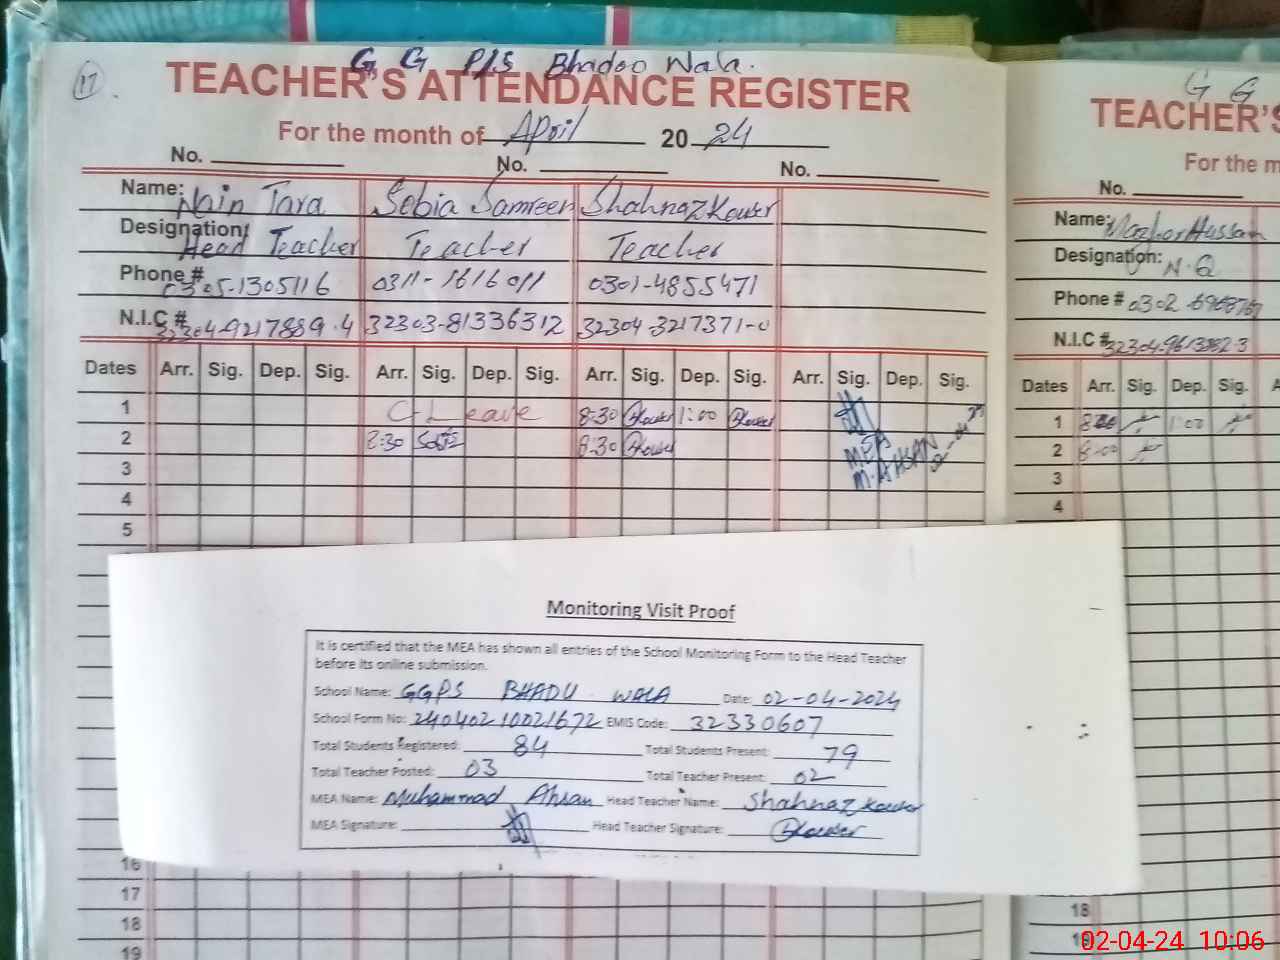 G G P/S Bhadoo Wala.
17
TEACHER'S ATTENDANCE REGISTER
For the month of April 2024
No. No. No.
Name: Nain Tara Sobia Samreen Shahnaz Kouser
Designation: Head Teacher Teacher Teacher
Phone # 0305-1305116 0311-1616011 0301-4855471
N.I.C # 32304-9217889-4 32303-81336312 32304-3217371-0
Dates Arr. Sig. Dep. Sig. Arr. Sig. Dep. Sig. Arr. Sig. Dep. Sig. Arr. Sig. Dep. Sig.
1 C-Leave 8:30 Kouser 1:00 Kouser
2 8:30 8:30 Kouser
MEA
M. AHSAN
3
4
5
16
17
18
19
Monitoring Visit Proof
It is certified that the MEA has shown all entries of the School Monitoring Form to the Head Teacher
before its online submission.
School Name: GGPS BHADU WALA Date: 02-04-2024
School Form No: 24040210021672 EMIS Code: 32330607
Total Students Registered: 84 Total Students Present: 79
Total Teacher Posted: 03 Total Teacher Present: 02
MEA Name: Muhammad Ahsan Head Teacher Name: Shahnaz Kouser
MEA Signature: Head Teacher Signature: Kouser
G G
TEACHER'S
For the m
No.
Name: Mazhar Hussain
Designation: N.Q
Phone # 0302
N.I.C #
Dates Arr. Sig. Dep. Sig. A
1 1:00
2 8:00
3
4
18
19
02-04-24 10:06